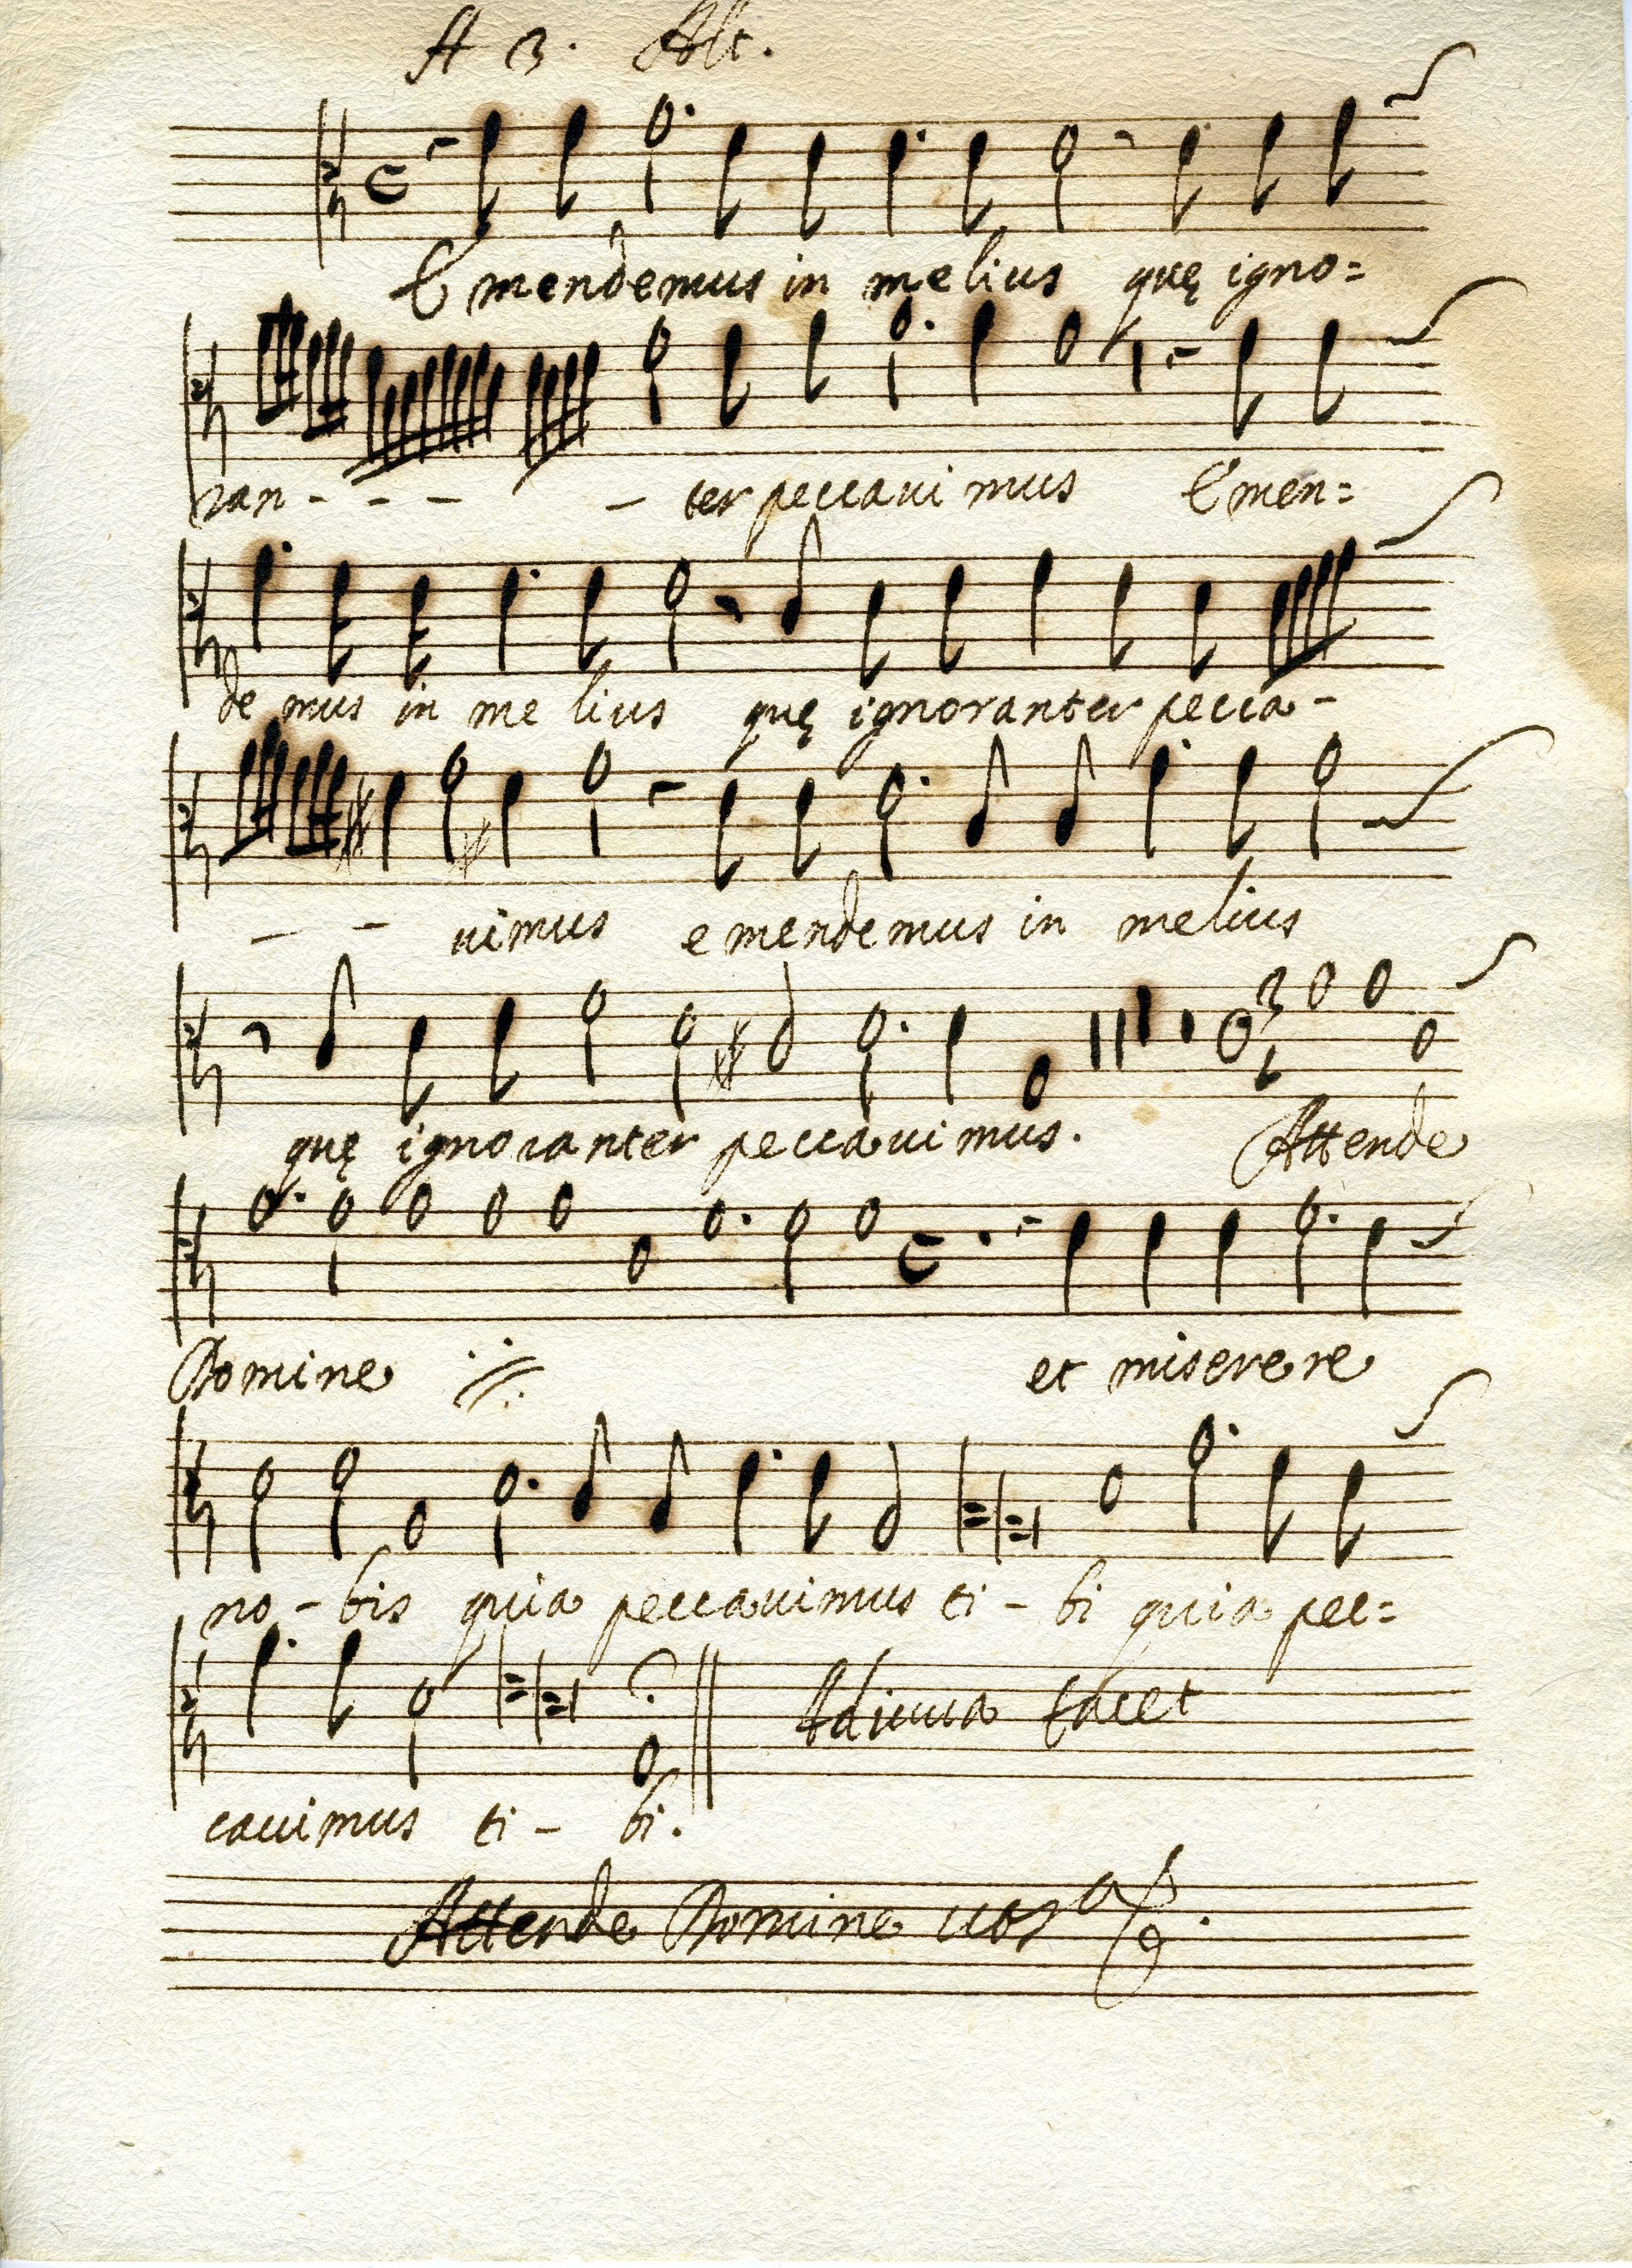 A 3. Alt.
Emendemus in melius quę igno=
ran - - - - ter peccaui mus Emen=
de mus in me lius quę ignoranter pecca-
- - uimus emendemus in melius
quę ignoranter peccauimus. Attende
Domine et miserere
no - bis quia peccauimus ti - bi quia pec=
Adiuua tacet
cauimus ti - bi.
Attende Domine